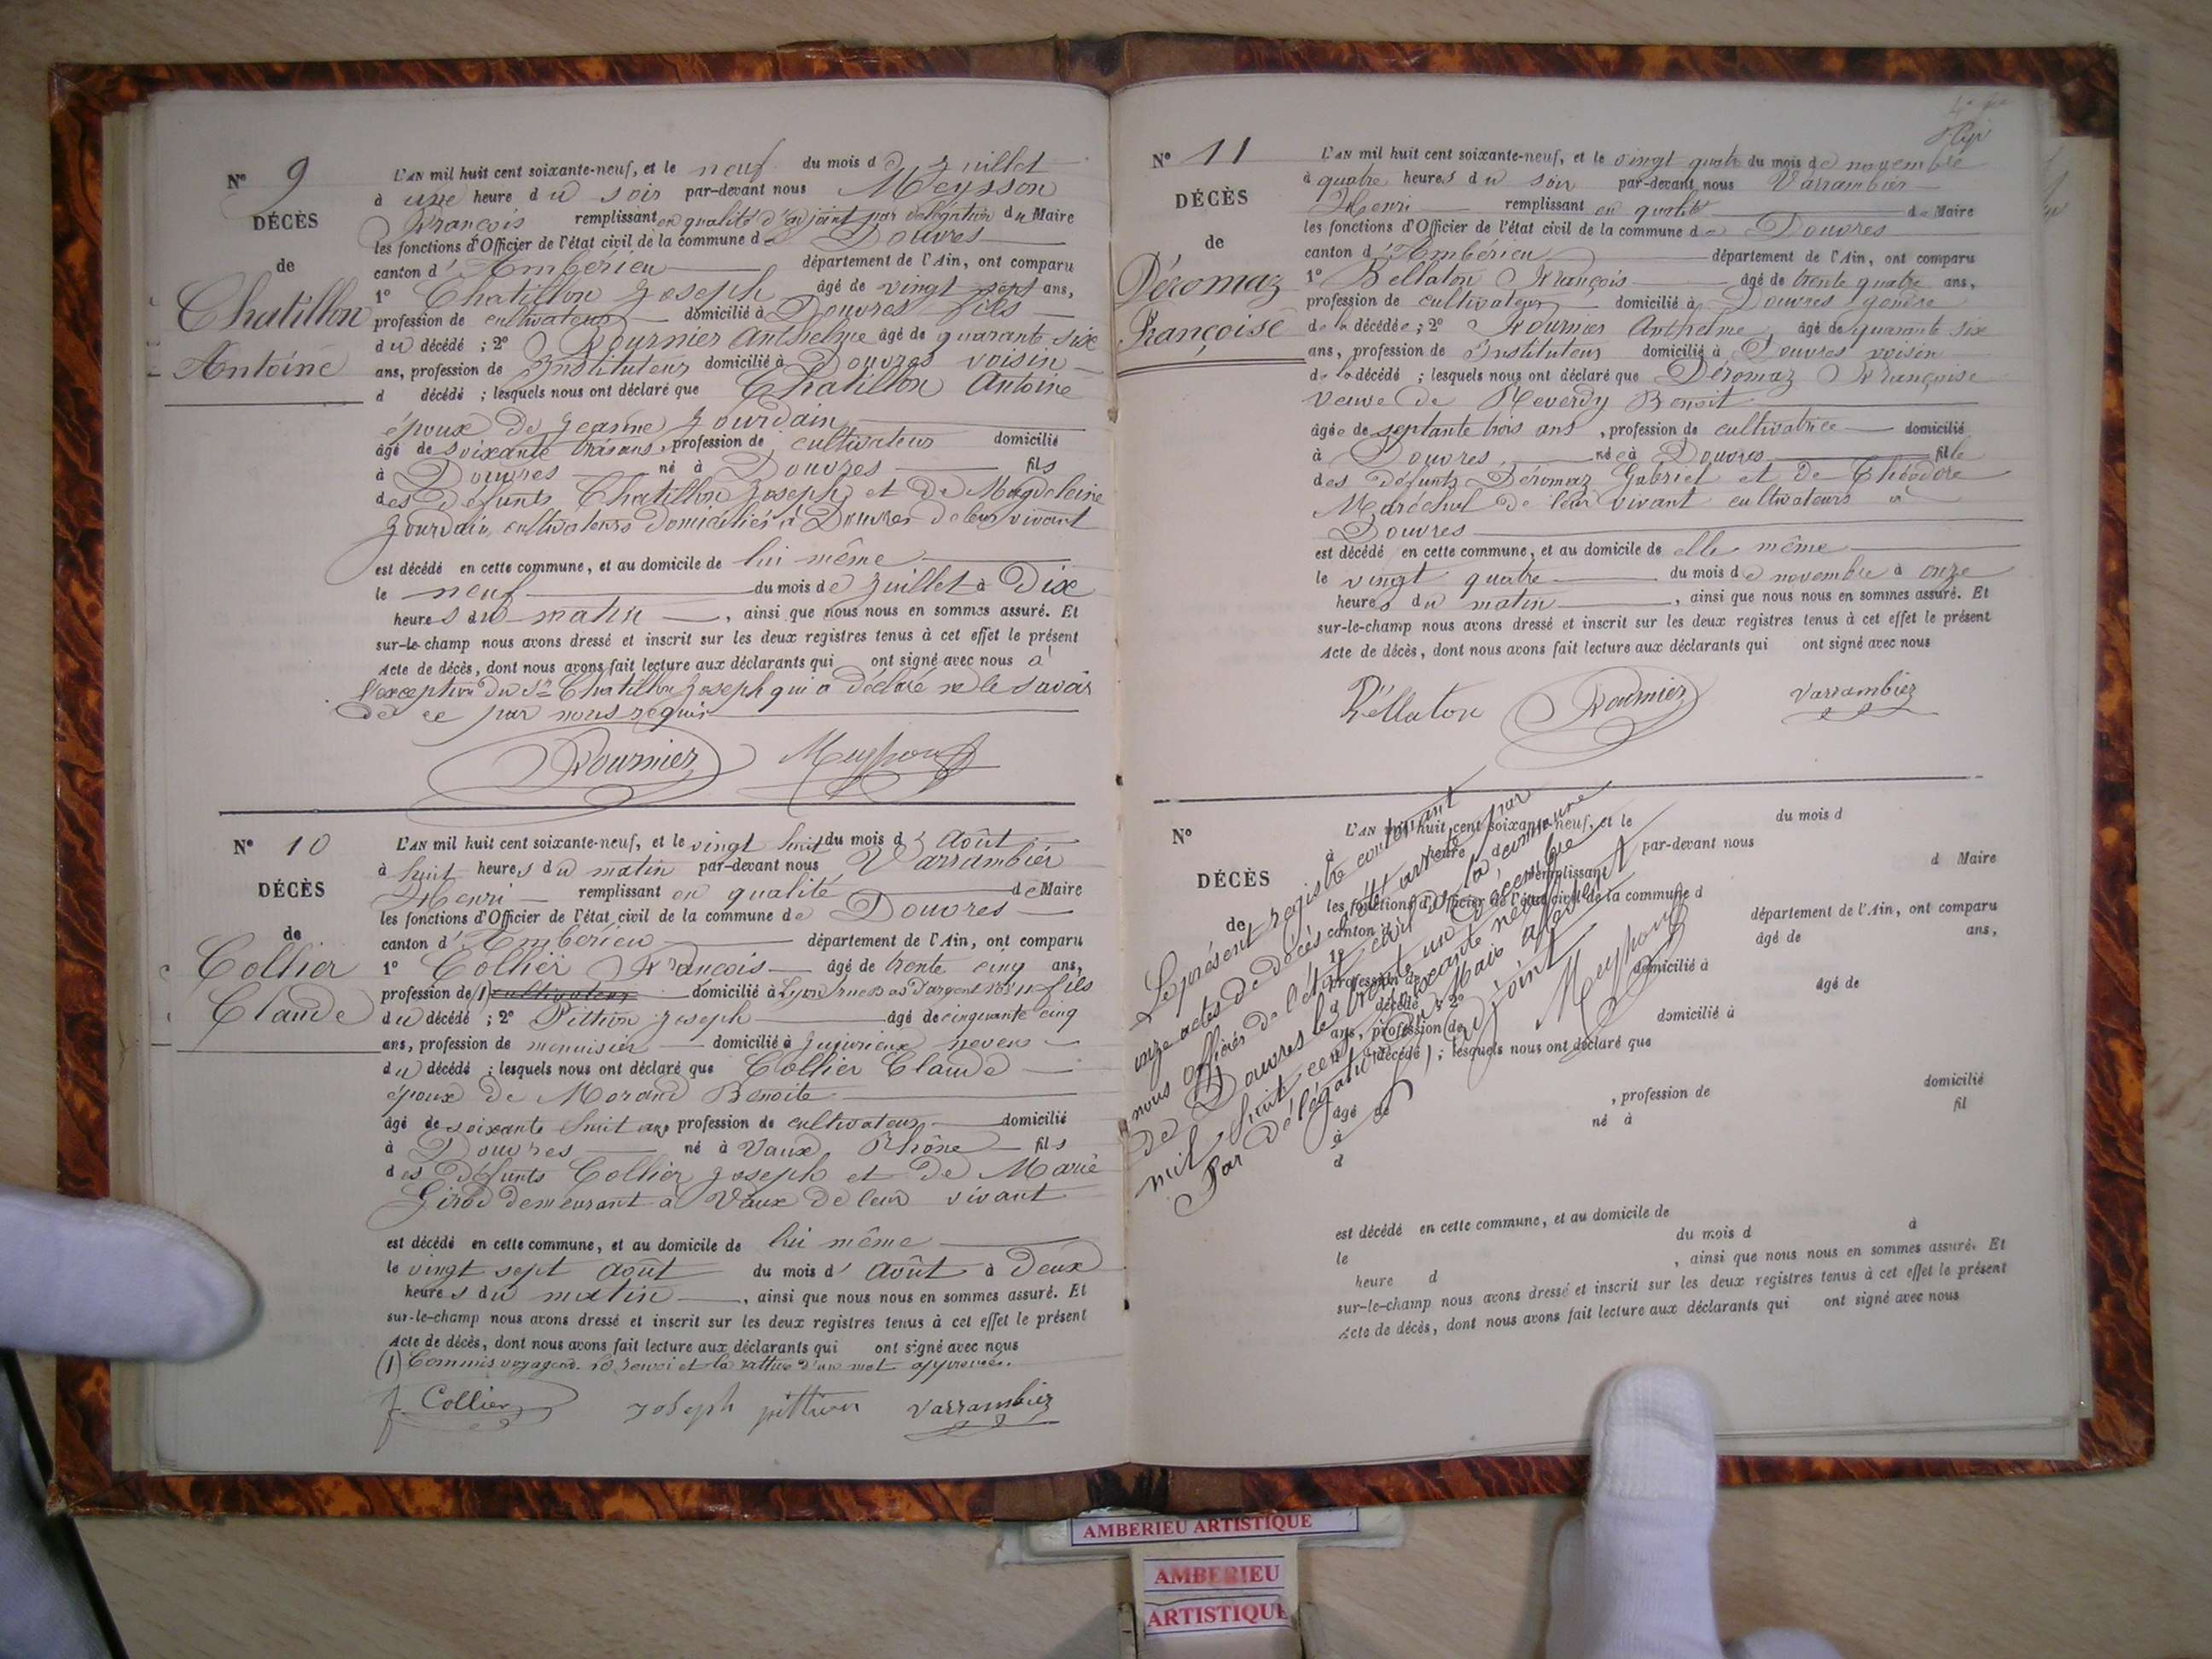 N° 9
DÉCÈS
de
Chatillon
Antoine
L'AN mil huit cent soixante-neuf, et le neuf du mois de Juillet
à une heure du soir par-devant nous Meysson
François remplissant en qualité d'adjoint par délégation du Maire
les fonctions d'Officier de l'état civil de la commune de Douvres
canton d'Ambérieu département de l'Ain, ont comparu
1° Chatillon Joseph âgé de vingt sept ans,
profession de cultivateur domicilié à Douvres fils
du décédé ; 2° Fournier Anthelme âgé de quarante six
ans, profession de Instituteur domicilié à Douvres voisin
d décédé ; lesquels nous ont déclaré que Chatillon Antoine
époux de Jeanne Jourdain
âgé de soixante trois ans, profession de cultivateur domicilié
à Douvres né à Douvres fils
des défunts Chatillon Joseph et de Magdeleine
Jourdain, cultivateurs domiciliés à Douvres de leur vivant
est décédé en cette commune, et au domicile de lui même
le neuf du mois de Juillet à Dix
heures du matin, ainsi que nous nous en sommes assuré. Et
sur-le-champ nous avons dressé et inscrit sur les deux registres tenus à cet effet le présent
Acte de décès, dont nous avons fait lecture aux déclarants qui ont signé avec nous à
l'exception du Sr Chatillon Joseph qui a déclaré ne le savoir
de ce par nous requis
Fournier Meysson
N° 10
DÉCÈS
de
Collier
Claude
L'AN mil huit cent soixante-neuf, et le vingt huit du mois d'Août
à huit heures du matin par-devant nous Varrambier
Henri remplissant en qualité de Maire
les fonctions d'Officier de l'état civil de la commune de Douvres
canton d'Ambérieu département de l'Ain, ont comparu
1° Collier François âgé de trente cinq ans,
profession de (1) cultivateur domicilié à Lyon rue Bas d'argent N° 11 fils
du décédé ; 2° Pittion Joseph âgé de cinquante cinq
ans, profession de menuisier domicilié à Jujurieux neveu
du décédé ; lesquels nous ont déclaré que Collier Claude
époux de Morand Benoite
âgé de soixante huit ans profession de cultivateur domicilié
à Douvres né à Vaux Rhône fils
des défunts Collier Joseph et de Marie
Girod demeurant à Vaux de leur vivant
est décédé en cette commune, et au domicile de lui même
le vingt sept août du mois d'Août à Deux
heures du matin, ainsi que nous nous en sommes assuré. Et
sur-le-champ nous avons dressé et inscrit sur les deux registres tenus à cet effet le présent
Acte de décès, dont nous avons fait lecture aux déclarants qui ont signé avec nous
(1) Commis voyageur. Le renvoi et la rature d'un mot approuvés.
f. Collier Joseph pittion Varrambier
N° 11
DÉCÈS
de
Déromaz
Françoise
L'AN mil huit cent soixante-neuf, et le vingt quatre du mois de novembre
à quatre heures du soir par-devant nous Varrambier
Henri remplissant en qualité de Maire
les fonctions d'Officier de l'état civil de la commune de Douvres
canton d'Ambérieu département de l'Ain, ont comparu
1° Bellaton François âgé de trente quatre ans,
profession de cultivateur domicilié à Douvres gendre
de la décédée ; 2° Fournier Anthelme âgé de quarante six
ans, profession de Instituteur domicilié à Douvres voisin
de la décédé ; lesquels nous ont déclaré que Déromaz Françoise
veuve de Reverdy Benoit
âgée de septante trois ans, profession de cultivatrice domicilié
à Douvres née à Douvres fille
des défunts Déromaz Gabriel et de Théodore
Maréchal de leur vivant cultivateurs à
Douvres
est décédé en cette commune, et au domicile de elle même
le vingt quatre du mois de novembre à onze
heures du matin, ainsi que nous nous en sommes assuré. Et
sur-le-champ nous avons dressé et inscrit sur les deux registres tenus à cet effet le présent
Acte de décès, dont nous avons fait lecture aux déclarants qui ont signé avec nous
Bellaton Fournier Varrambier
N°
DÉCÈS
de
L'AN mil huit cent soixante-neuf, et le du mois d
à heure d par-devant nous
remplissant d Maire
les fonctions d'Officier de l'état civil de la commune d
canton d département de l'Ain, ont comparu
1° âgé de ans,
profession de domicilié à
décédé ; 2° âgé de
ans, profession de domicilié à
d décédé ; lesquels nous ont déclaré que
âgé de , profession de domicilié
à né à fil
d
est décédé en cette commune, et au domicile de
le du mois d à
heure d , ainsi que nous nous en sommes assuré. Et
sur-le-champ nous avons dressé et inscrit sur les deux registres tenus à cet effet le présent
Acte de décès, dont nous avons fait lecture aux déclarants qui ont signé avec nous
Le présent registre contenant
onze actes de décès a été arrêté par
nous officier de l'état civil de la commune
de Douvres le trente un décembre
mil huit cent soixante neuf
Par délégation du Maire absent
l'adjoint
Meysson
AMBERIEU ARTISTIQUE
AMBERIEU
ARTISTIQUE